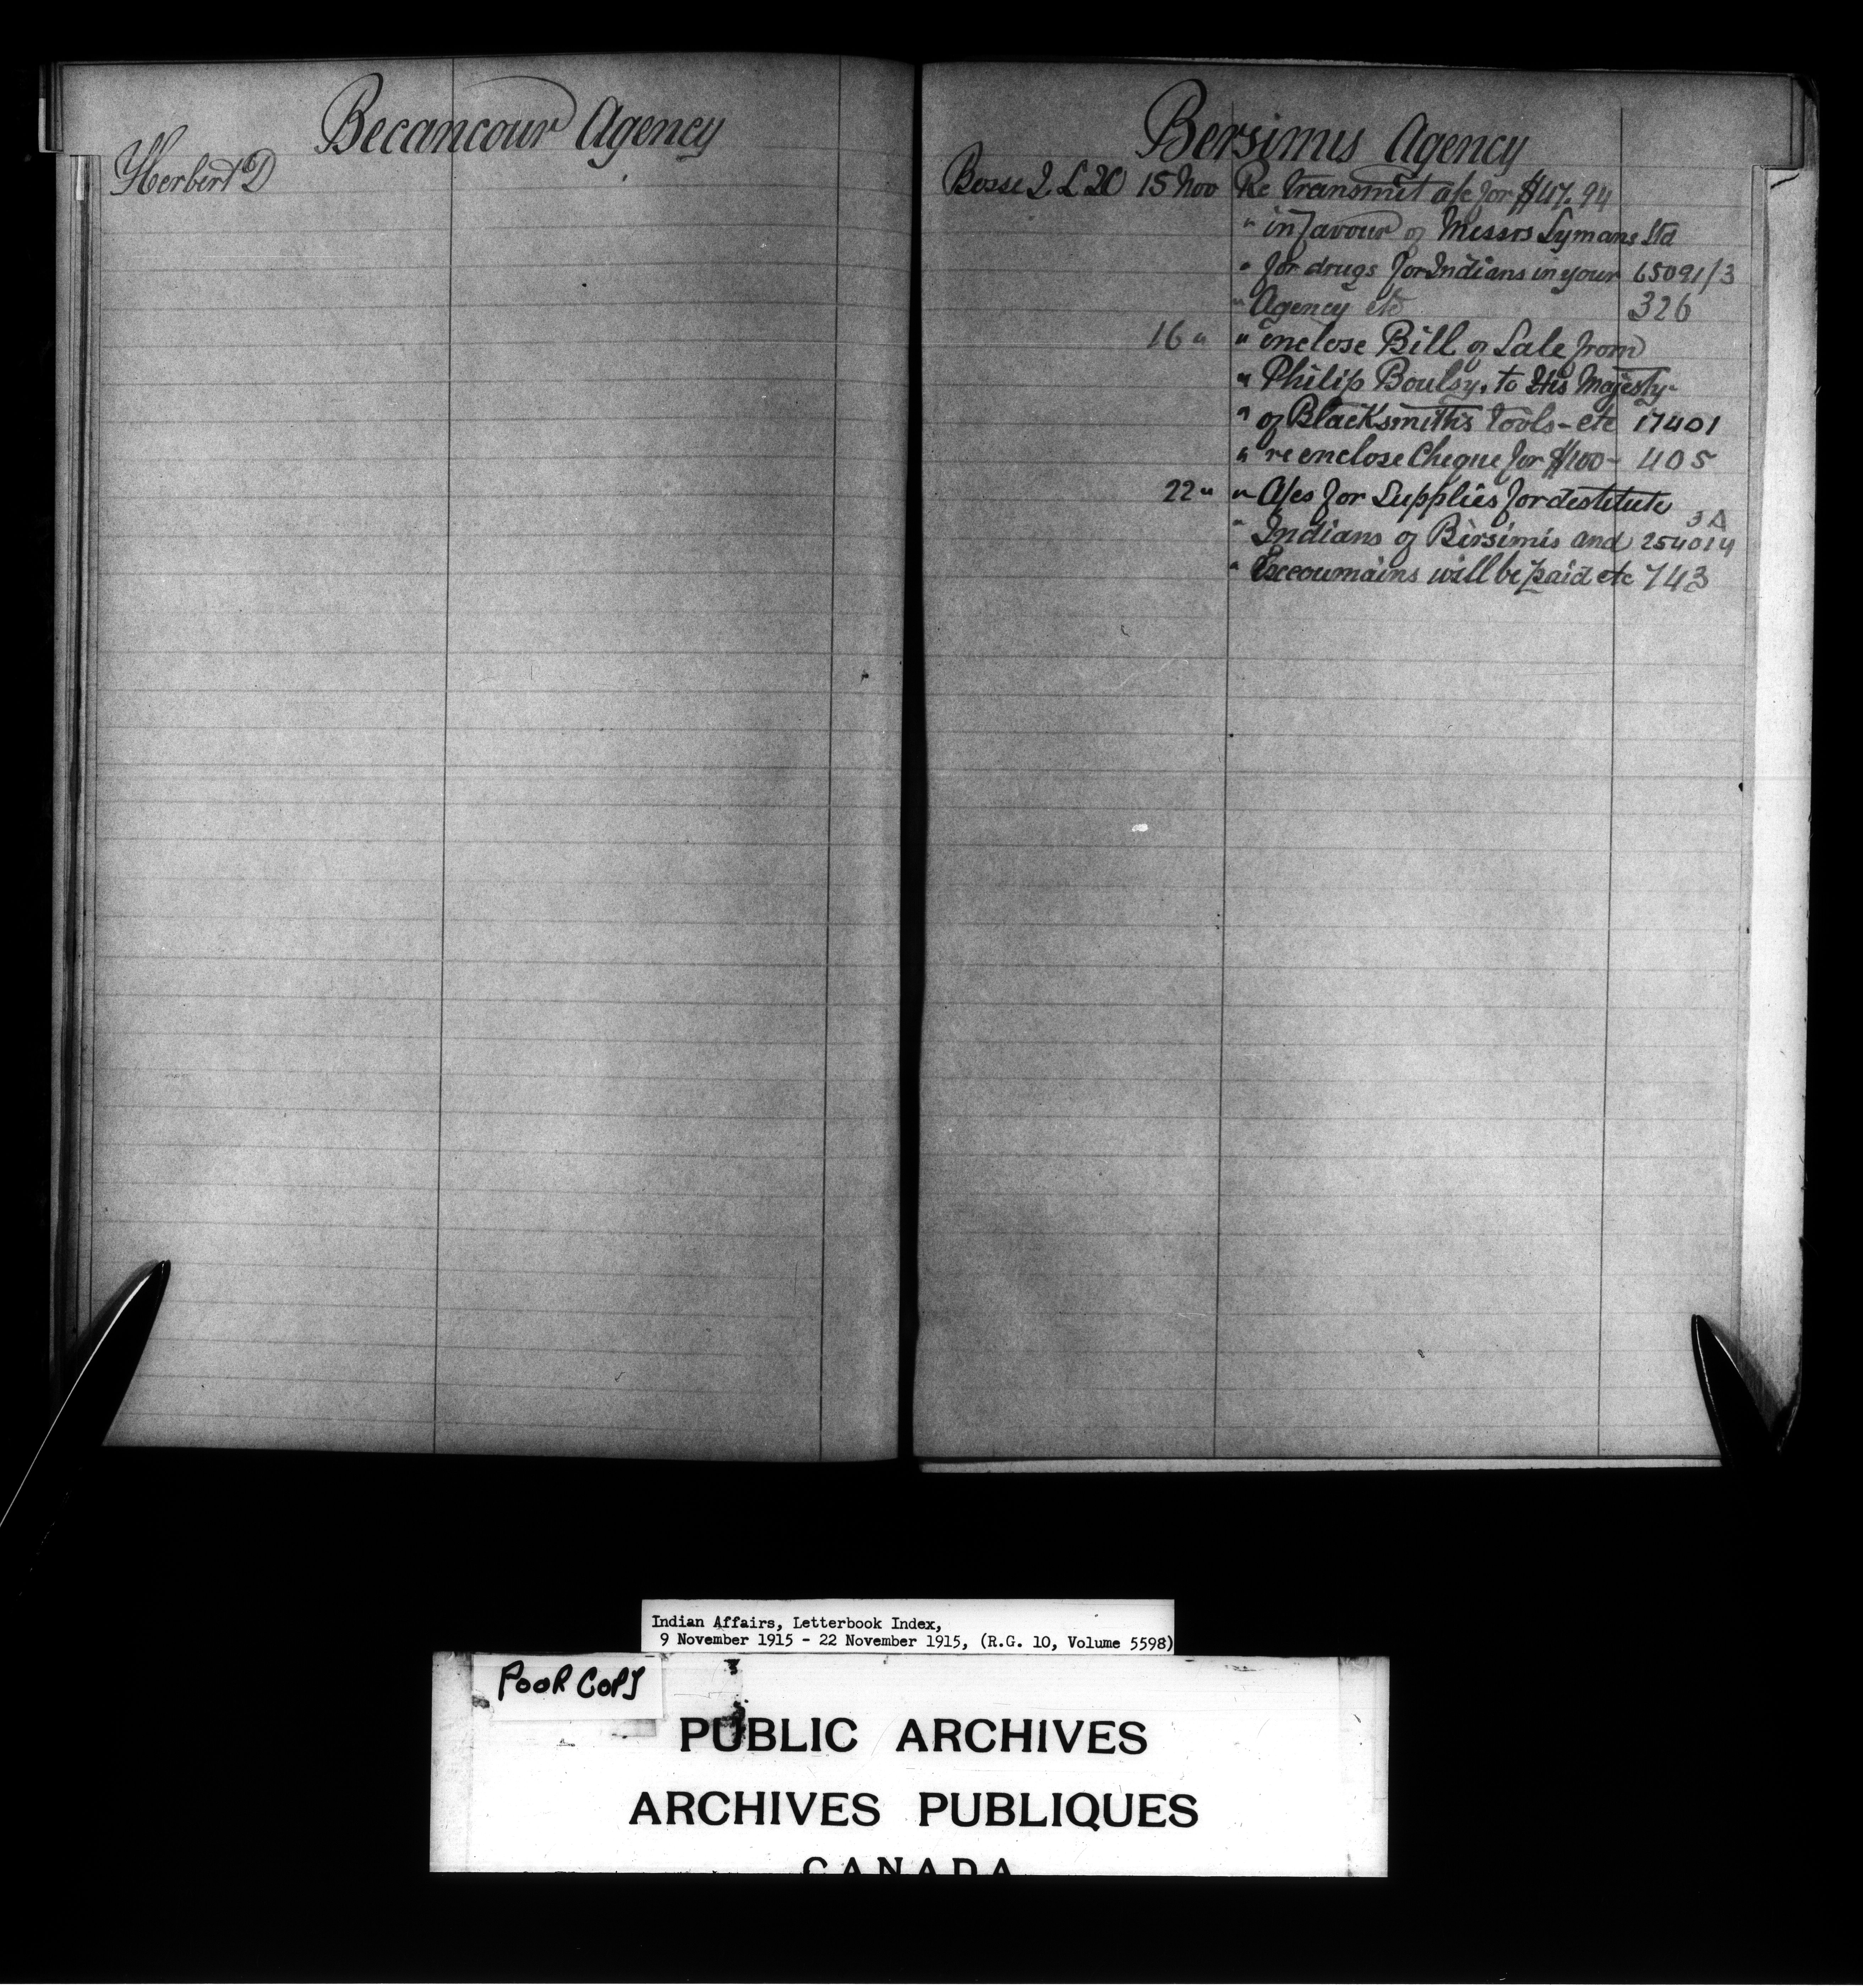 Becancour Agency
Herbert D
Bersimis Agency
Bosse J. L. 20 15 Nov Re transmit a/c for $47.94
" in favour of Messrs Lymans Ltd
" for drugs for Indians in your 65091/3
" Agency etc 326
16 " " enclose Bill of Sale from
" Philip Boulsy. to His Majesty-
" of Blacksmith's Tools - etc 17401
" re enclose Cheque for $100 - 405
22 " " A/cs for Supplies for destitute
3A
" Indians of Bersimis and 254014
" Escoumains will be paid etc 743
Indian Affairs, Letterbook Index,
9 November 1915 - 22 November 1915, (R.G. 10, Volume 5598)
POOR COPY
PUBLIC ARCHIVES
ARCHIVES PUBLIQUES
CANADA